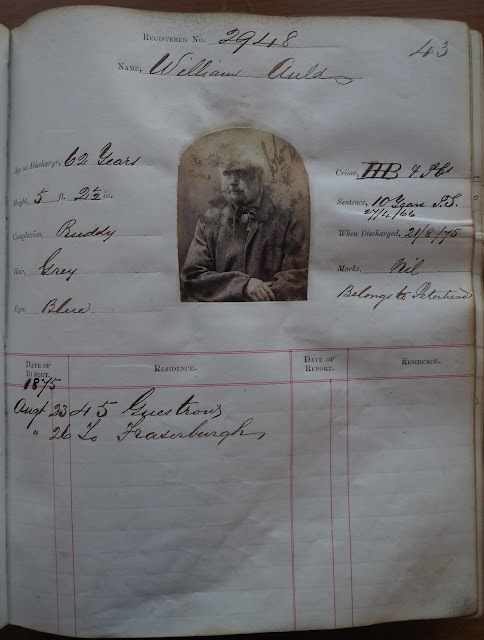 43
REGISTERED No. 2948
NAME, William Auld
Age on Discharge, 62 Years
Height, 5 ft. 2½ in.
Complexion, Ruddy
Hair, Grey
Eyes, Blue
Crime, HB & PCs
Sentence, 10 Years P.S.
27/4/66
When Discharged, 21/8/75
Marks, Nil
Belongs to Peterhead
DATE OF REPORT. RESIDENCE. DATE OF REPORT. RESIDENCE.
1875
Augt 23 45 Guestrow
" 26 To Fraserburgh